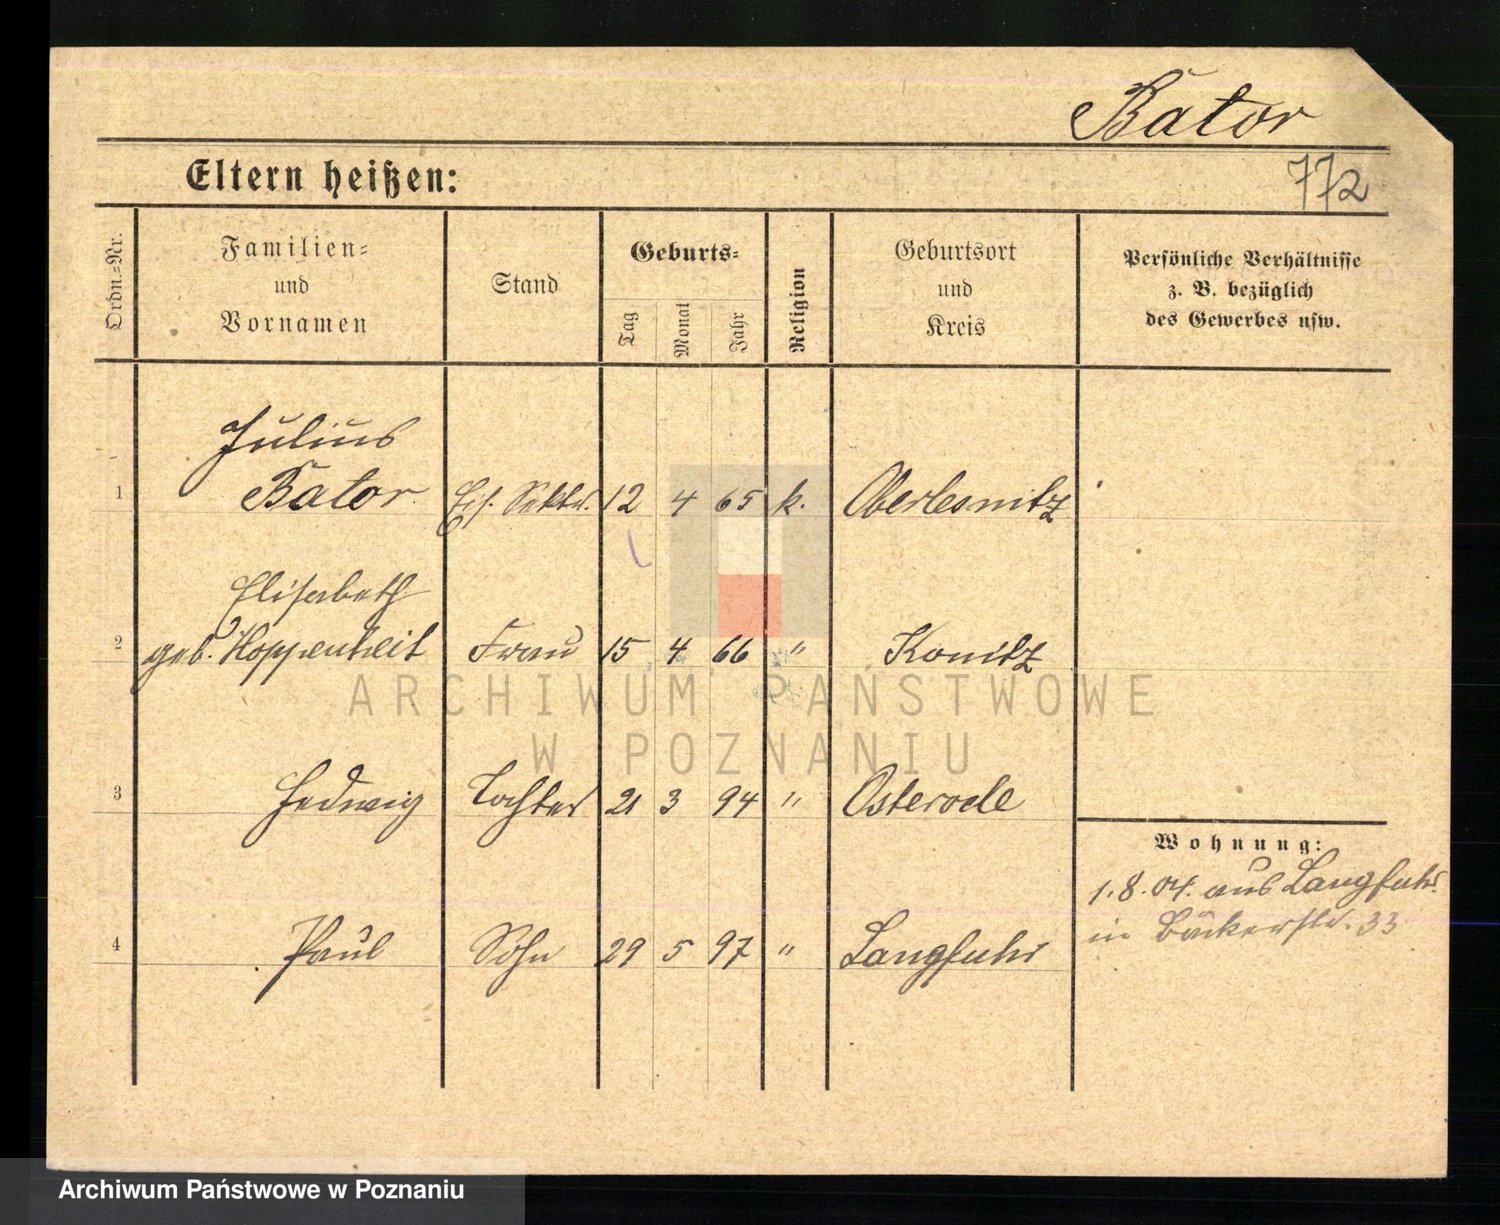 Bator
Eltern heißen:
772
Ordn.-Nr.
Familien-
und
Vornamen
Stand
Geburts-
Tag
Monat
Jahr
Religion
Geburtsort
und
Kreis
Persönliche Verhältnisse
z. B. bezüglich
des Gewerbes usw.
Julius
1 Bator Eis. Sektr. 12 4 65 k. Oberlesnitz
Elisabeth
2 geb. Hoppenheit Frau 15 4 66 " Konitz
ARCHIWUM PAŃSTWOWE
W POZNANIU
3 Hedwig Tochter 21 3 94 " Osterode
Wohnung:
1.8.04. aus Langfuhr
in Bäckerstr. 33
4 Paul Sohn 29 5 97 " Langfuhr
Archiwum Państwowe w Poznaniu